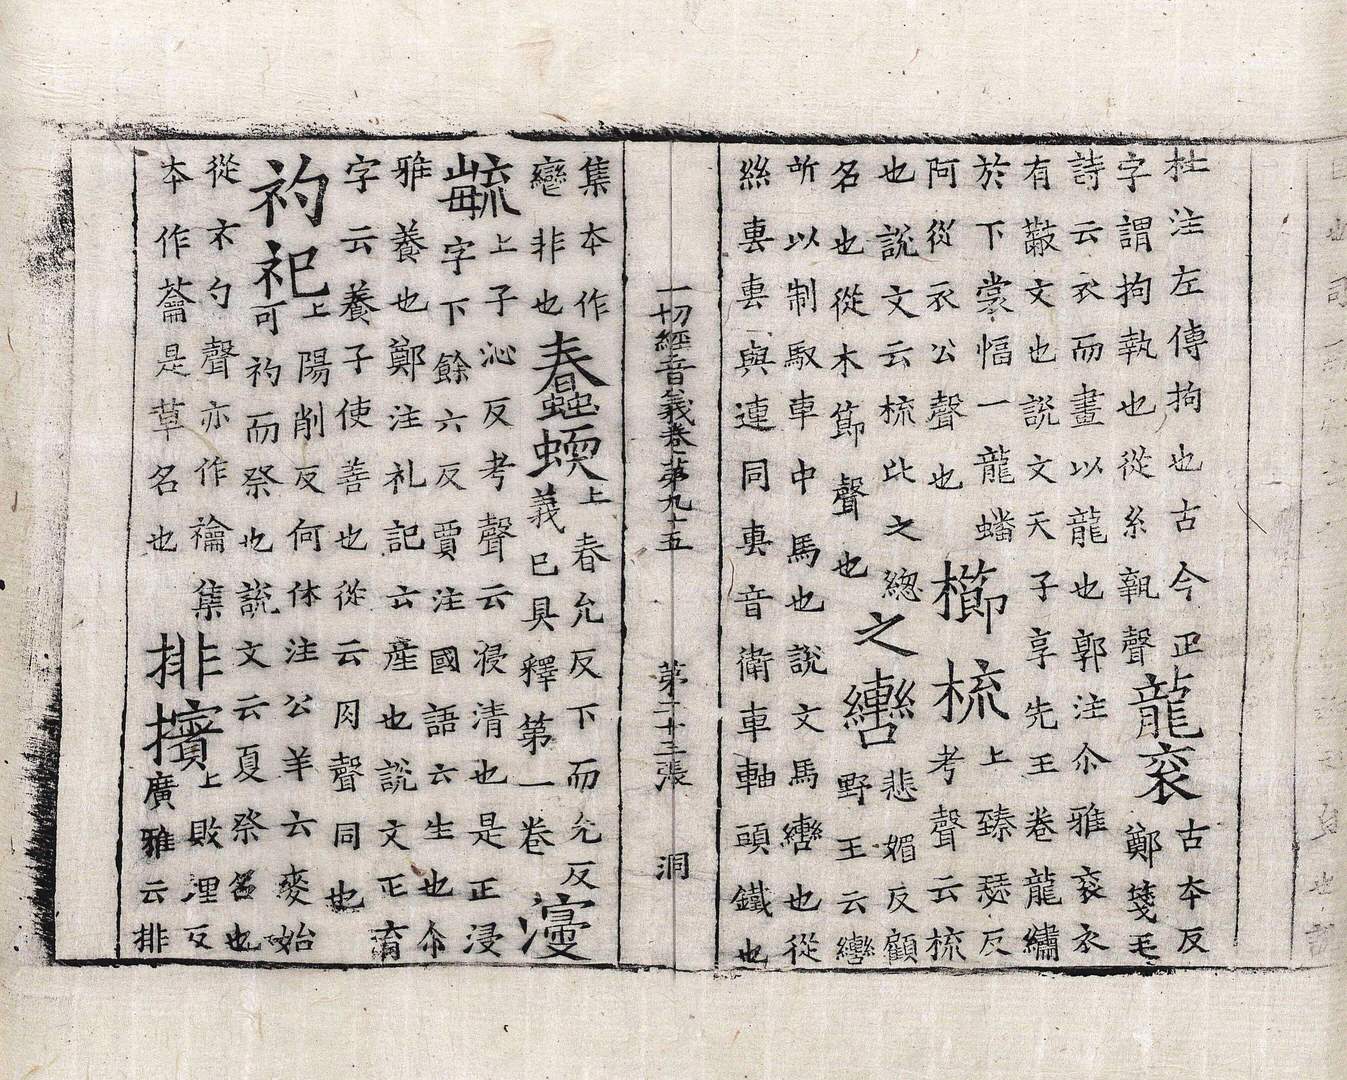 杜注左傳拘也古今正龍衮古本反
字謂拘執也從糸䡄聲鄭箋毛
詩云衣而畫以龍也郭注尒雅衮衣
有黻文也說文天子享先王卷龍繡
於下裳幅一龍蟠
阿從衣公聲也櫛梳上臻瑟反考聲云梳
也說文云梳比之總名也從木節聲也
之轡悲媚反顧野王云轡
所以制馭車中馬也說文馬轡也從
絲軎軎與連同軎音衛車軸頭鐵也
一切經音義卷第九十五 第二十三張 洞
集本作
㦨非也蠢蝡上春允反下而允反義已具釋第一卷
毓上子沁反考聲云浸清也是正浸
字下餘六反賈注國語云生也尒
雅養也鄭注礼記云産也說文正育
字云養子使善也從云肉聲同也
礿祀上陽削反何休注公羊云麥始
可礿而祭也說文云夏祭名也
從示勺聲亦作禴集
本作蘥是草名也排擯上敗埋反廣雅云排